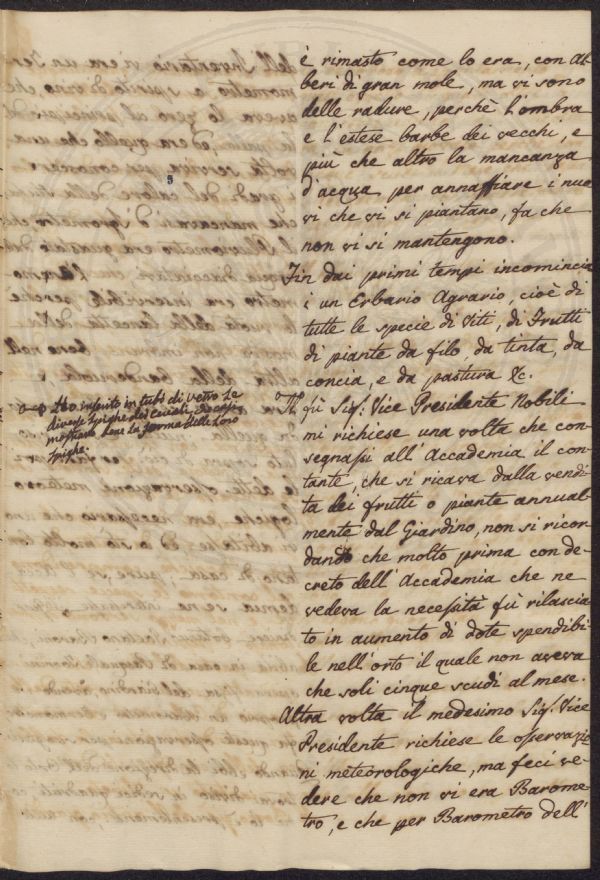 è rimasto come lo era, con Al-
beri di gran mole, ma vi sono
delle radure, perchè l'ombra
e l'estese barbe dei vecchi, e
più che altro la mancanza
d'acqua per annaffiare i nuo
vi che vi si piantano, fa che
non vi si mantengono.
Fin dai primi tempi incomincia
i un Erbario Agrario, cioè di
tutte le specie di Viti, di Frutti
di piante da filo, da tinta, da
concia, e da pastura &c.
Il fù Sig.r Vice Presidente Nobili
mi richiese una volta che con
segnassi all'Accademia il con
tante, che si ricava dalla vendi
ta dei frutti o piante annual-
mente dal Giardino, non si ricor
dando che molto prima con de-
creto dell'Accademia che ne
vedeva la necessità fù rilascia
to in aumento di dote spendibi-
le nell'orto il quale non aveva
che soli cinque scudi al mese.
Altra volta il medesimo Sig.r Vice
Presidente richiese le osservazio
ni meteorologiche, ma feci ve-
dere che non vi era Barome-
tro, e che per Barometro dell'
Ho inserito in tubi di vetro le
diverse spighe dei cereali,
mostrano bene la forma delle loro
spighe.
5